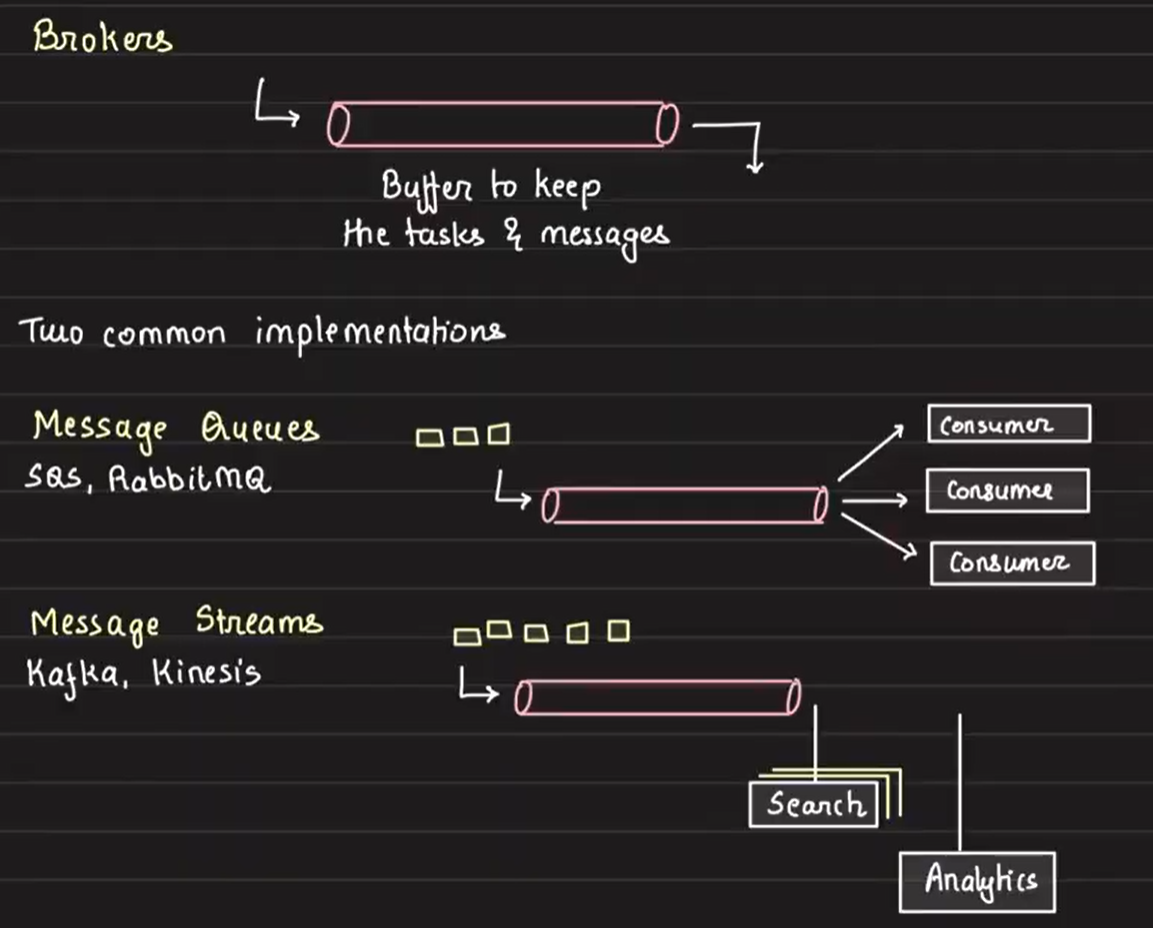 Brokers
Buffer to keep
the tasks & messages
Two common implementations
Message Queues
SQS, RabbitMQ
Consumer
Consumer
Consumer
Message Streams
Kafka, Kinesis
Search
Analytics